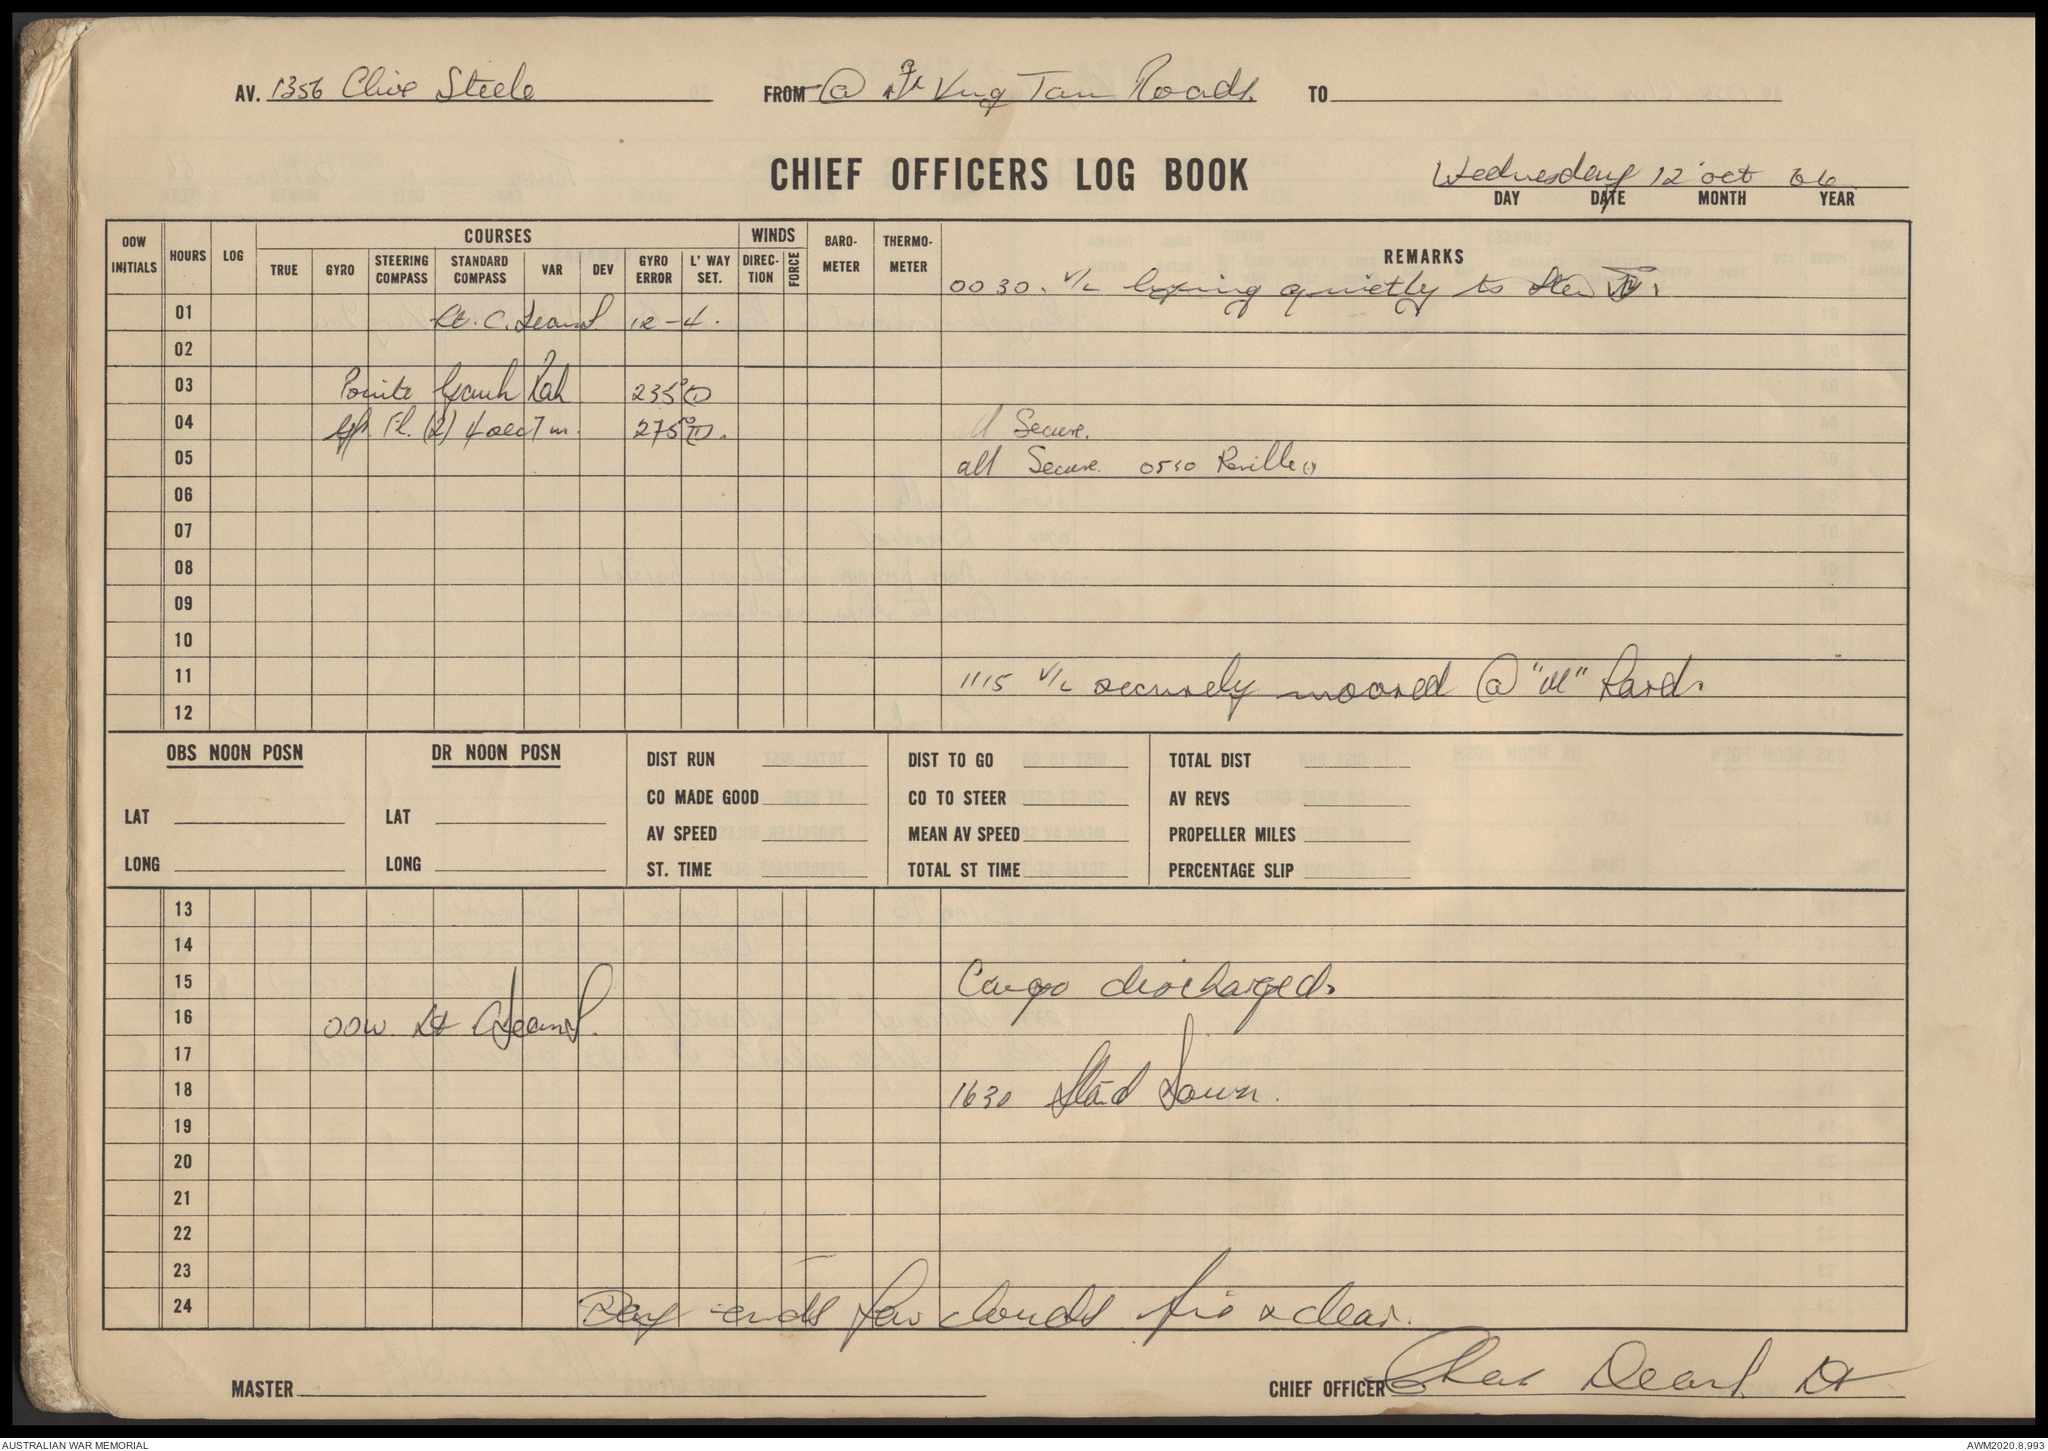 AV. 1356 Clive Steele FROM @ Vung Tau Roads. TO
CHIEF OFFICERS LOG BOOK
Wednesday 12 Oct 66
DAY DATE MONTH YEAR
OOW INITIALS HOURS LOG COURSES WINDS BARO-METER THERMO-METER REMARKS
TRUE GYRO STEERING COMPASS STANDARD COMPASS VAR DEV GYRO ERROR L' WAY SET. DIREC-TION FORCE
0030. V/L lying quietly to
01 Lt. C. Deans 12-4.
02
03 Pointe Ganh Rah 235°(T)
04 Fl. (2) 4 sec 7 m. 275°(T). Secure.
05 all Secure. 0530
06
07
08
09
10
11 1115 V/L securely moored @ "M" Hard.
12
OBS NOON POSN DR NOON POSN DIST RUN DIST TO GO TOTAL DIST
CO MADE GOOD CO TO STEER AV REVS
LAT LAT AV SPEED MEAN AV SPEED PROPELLER MILES
LONG LONG ST. TIME TOTAL ST TIME PERCENTAGE SLIP
13
14
15 Cargo discharged.
16 OOW. Lt Deans.
17
18 1630 Stand Down.
19
20
21
22
23
24 Day ends few clouds & clear.
MASTER CHIEF OFFICER Chas Deans Lt
AUSTRALIAN WAR MEMORIAL AWM2020.8.993